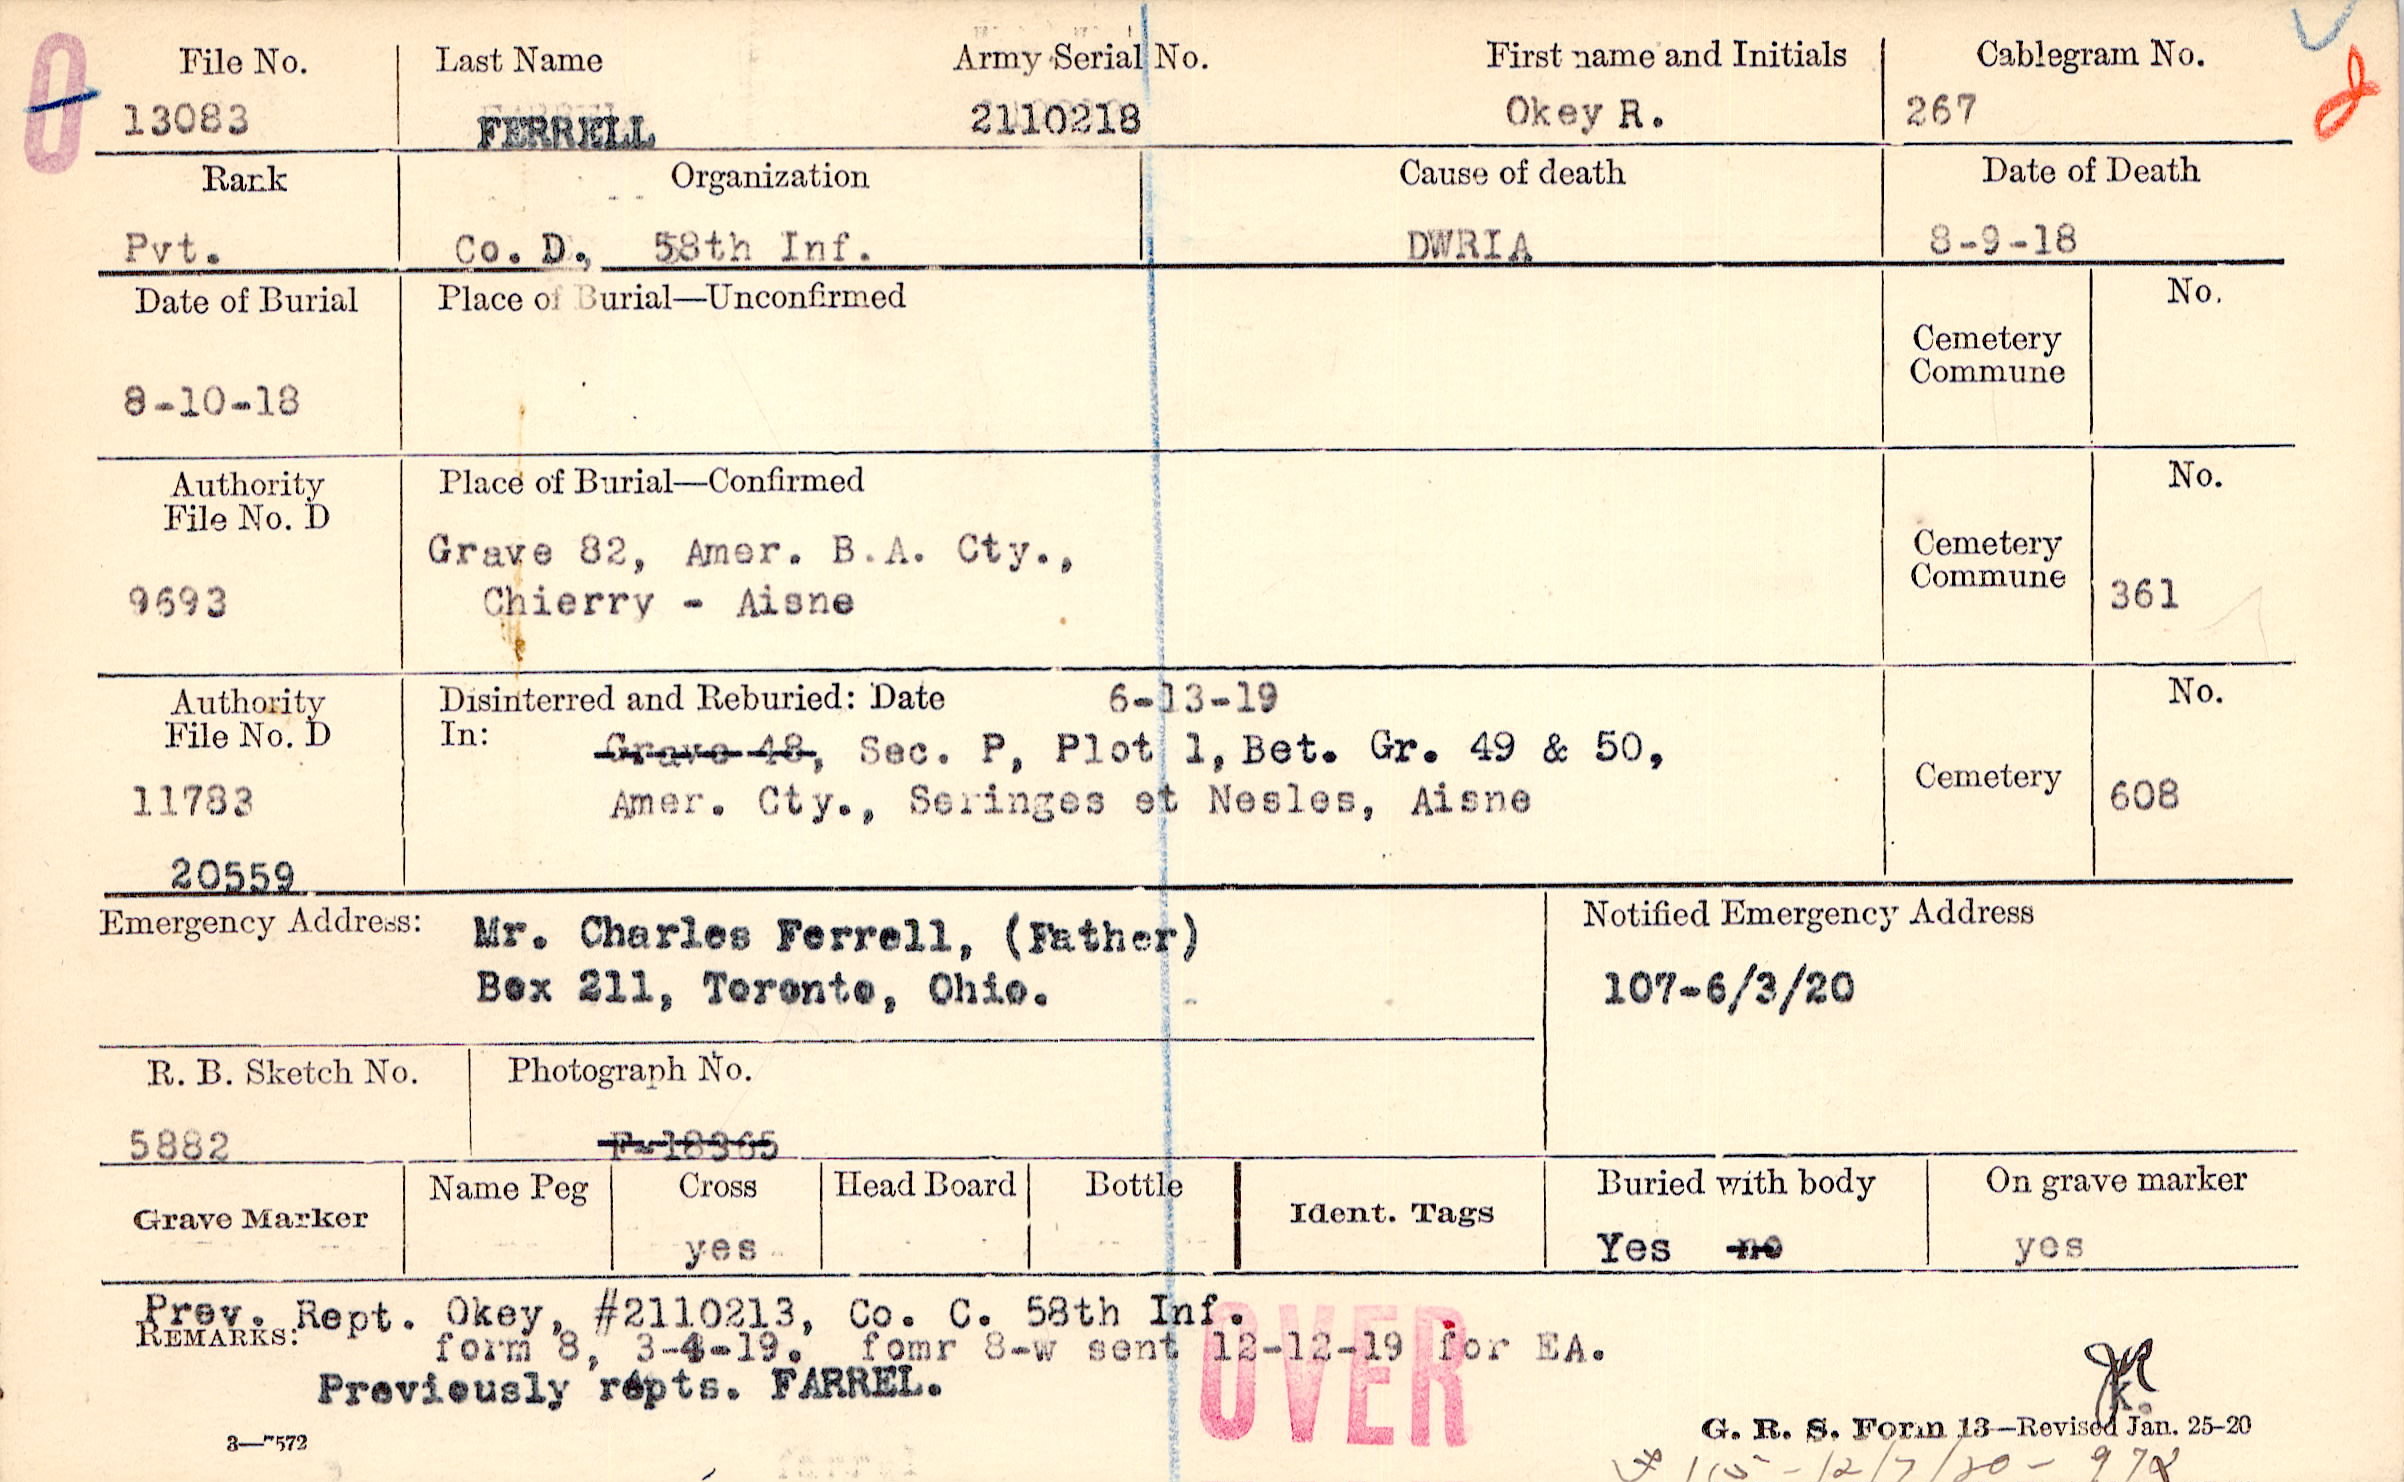 O
File No. Last Name Army Serial No. First name and Initials Cablegram No.
13083 FERRELL 2110218 Okey R. 267
Rank Organization Cause of death Date of Death
Pvt. Co. D., 58th Inf. DWRIA 8-9-18
Date of Burial Place of Burial—Unconfirmed No.
Cemetery
Commune
8-10-18
Authority Place of Burial—Confirmed No.
File No. D
Grave 82, Amer. B.A. Cty., Cemetery
Commune
9693 Chierry - Aisne 361
Authority Disinterred and Reburied: Date 6-13-19 No.
File No. D In: Grave 48, Sec. P, Plot 1, Bet. Gr. 49 & 50,
Cemetery
11783 Amer. Cty., Seringes et Nesles, Aisne 608
20559
Emergency Address: Mr. Charles Ferrell, (Father) Notified Emergency Address
Box 211, Toronto, Ohio. 107-6/3/20
R. B. Sketch No. Photograph No.
5882 F-18365
Grave Marker Name Peg Cross Head Board Bottle Ident. Tags Buried with body On grave marker
yes Yes no yes
Prev. Rept. Okey, #2110213, Co. C. 58th Inf.
REMARKS: form 8, 3-4-19. fomr 8-w sent 12-12-19 for EA.
Previously repts. FARREL.
OVER
K.
3—7572 G. R. S. Form 13—Revised Jan. 25-20
115-12/7/20-972